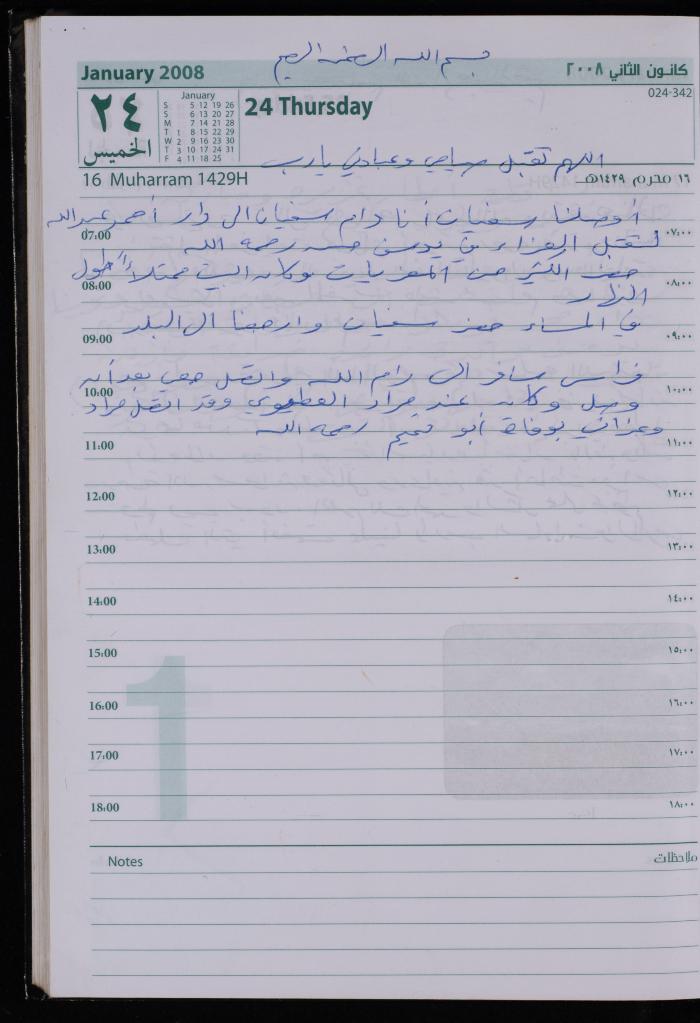 بسم الله الرحمن الرحيم
January 2008
كانون الثاني ٢٠٠٨
024-342
٢٤
الخميس
January
S 5 12 19 26
S 6 13 20 27
M 7 14 21 28
T 1 8 15 22 29
W 2 9 16 23 30
T 3 10 17 24 31
F 4 11 18 25
24 Thursday
اللهم تقبل صيامي وعبادتي يارب
16 Muharram 1429H
١٦ محرم ١٤٢٩هـ
أوصلنا سفيان أنا وام سفيان الى دار أحمد عبدالله
07:00 ٠٧:٠٠
لتقبل العزاء في يوسف حسن رحمه الله
حضر الكثير من المعزيات وكان البيت ممتلاً طول
08:00 ٠٨:٠٠
النهار
في المساء حضر سفيان وارجعنا ال البلد
09:00 ٠٩:٠٠
فراس سافر الى رام الله واتصل معي بعد أن
10:00 ١٠:٠٠
وصل وكان عند مراد وقد اتصل مراد
وعزاني بوفاة أبو تميم رحمه الله
11:00 ١١:٠٠
12:00 ١٢:٠٠
13:00 ١٣:٠٠
14:00 ١٤:٠٠
15:00 ١٥:٠٠
16:00 ١٦:٠٠
17:00 ١٧:٠٠
18:00 ١٨:٠٠
1
Notes ملاحظات